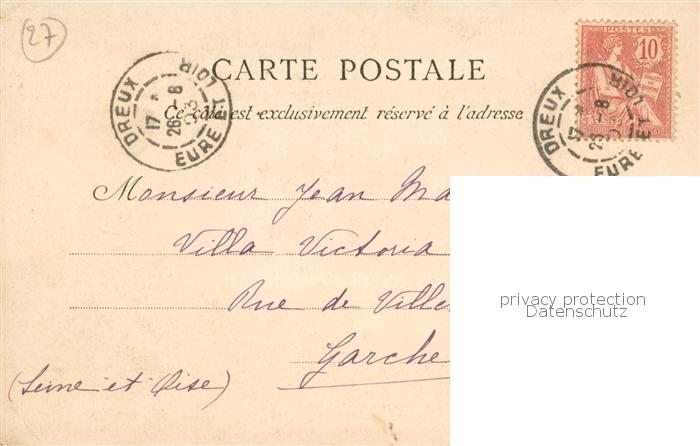 27
POSTES
10
CARTE POSTALE
Ce côté est exclusivement réservé à l'adresse
DREUX
17
26 - 8
03
EURE ET LOIR
DREUX
17
26 - 8
EURE ET LOIR
Monsieur Jean Ma
Villa Victoria
Rue de Ville
Garche
(Seine et Oise)
privacy protection
Datenschutz